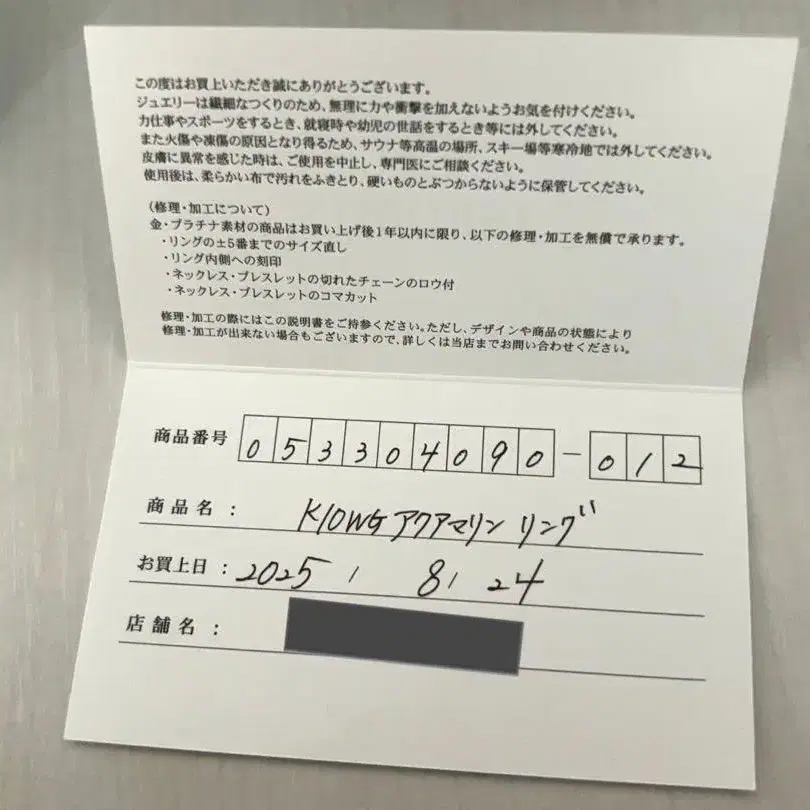 この度はお買上いただき誠にありがとうございます。
ジュエリーは繊細なつくりのため、無理に力や衝撃を加えないようお気を付けください。
力仕事やスポーツをするとき、就寝時や幼児の世話をするとき等には外してください。
また火傷や凍傷の原因となり得るため、サウナ等高温の場所、スキー場等寒冷地では外してください。
皮膚に異常を感じた時は、ご使用を中止し、専門医にご相談ください。
使用後は、柔らかい布で汚れをふきとり、硬いものとぶつからないように保管してください。
(修理・加工について)
金・プラチナ素材の商品はお買い上げ後1年以内に限り、以下の修理・加工を無償で承ります。
・リングの±5番までのサイズ直し
・リング内側への刻印
・ネックレス・ブレスレットの切れたチェーンのロウ付
・ネックレス・ブレスレットのコマカット
修理・加工の際にはこの説明書をご持参ください。ただし、デザインや商品の状態により
修理・加工が出来ない場合もございますので、詳しくは当店までお問い合わせください。
商品番号 053304090-012
商品名： K10WG アクアマリン リング
お買上日：2025 / 8 / 24
店舗名：